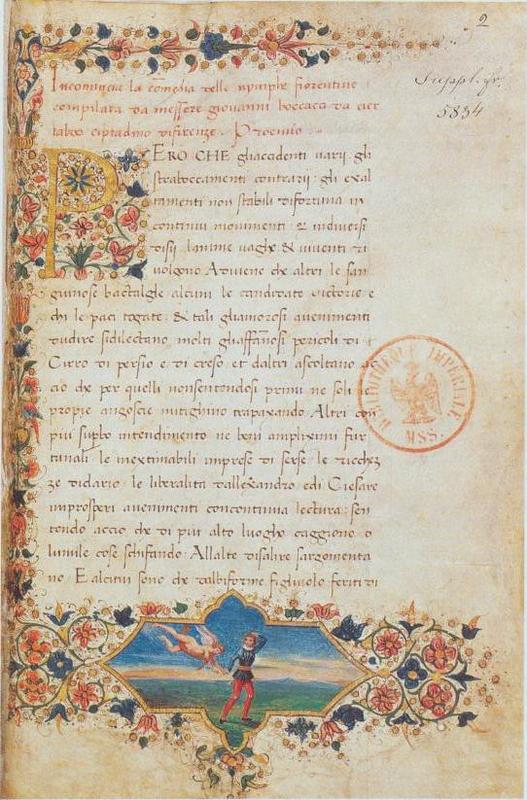 2
Suppl. fr.
5834
Incomincia la comedia delle nymphe fiorentine
compilata da messere giovanni boccaco da cier
taldo ciptadino difirenze. Proemio
PERO CHE gliaccidenti varii gli
straboccamenti contrarii: gli exal
tamenti non stabili difortuna in
continui movimenti & indiversi
disii lanime vaghe & viventi ri
volgono Adviene che altri le san
guinose battalgle alcuni le candidate victorie e
chi le paci togate: & tali gliamorosi avenimenti
dudire sidilectano. molti gliaffannosi pericoli di
Cirro di persio e di creso et daltri ascoltano
cio che per quelli nonsentendosi primi ne soli
proprie angoscie mitighino trapaxando. Altri con
piu supbo intendimento ne beni amplissimi for
tunali le inextimabili imprese di serse le ricchez
ze didario le liberalita dallexandro edi Ciesare
improsperi avenimenti concontinua lectura: sen
tendo accio che di piu alto luogho caggiono o
lumile cose schifando: Allalte disalire sargomenta
no. E alcuni sono che dalbiforme figluolo feriti di
BIBLIOTHEQUE IMPERIALE
MSS.